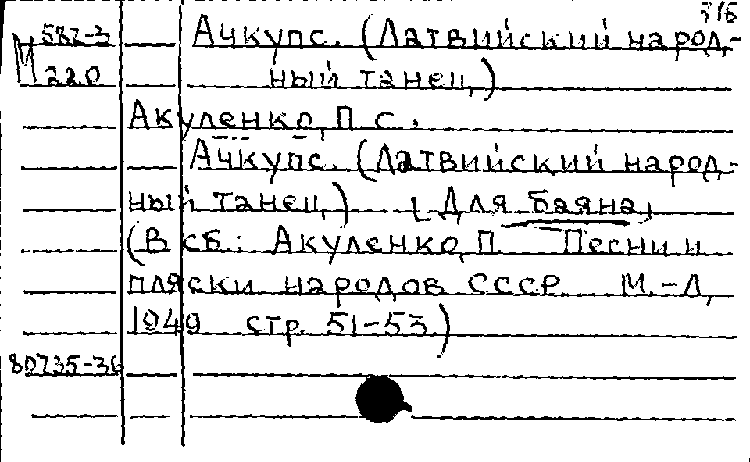 316
582-3
М 220
Ачкупс. (Латвийский народ-
ный танец)
Акуленко, П. С.
Ачкупс. (Латвийский народ-
ный танец) [Для баяна]
(В сб.: Акуленко, П. Песни и
пляски народов СССР. М.-Л,
1949 стр. 51-53.)
80735-36